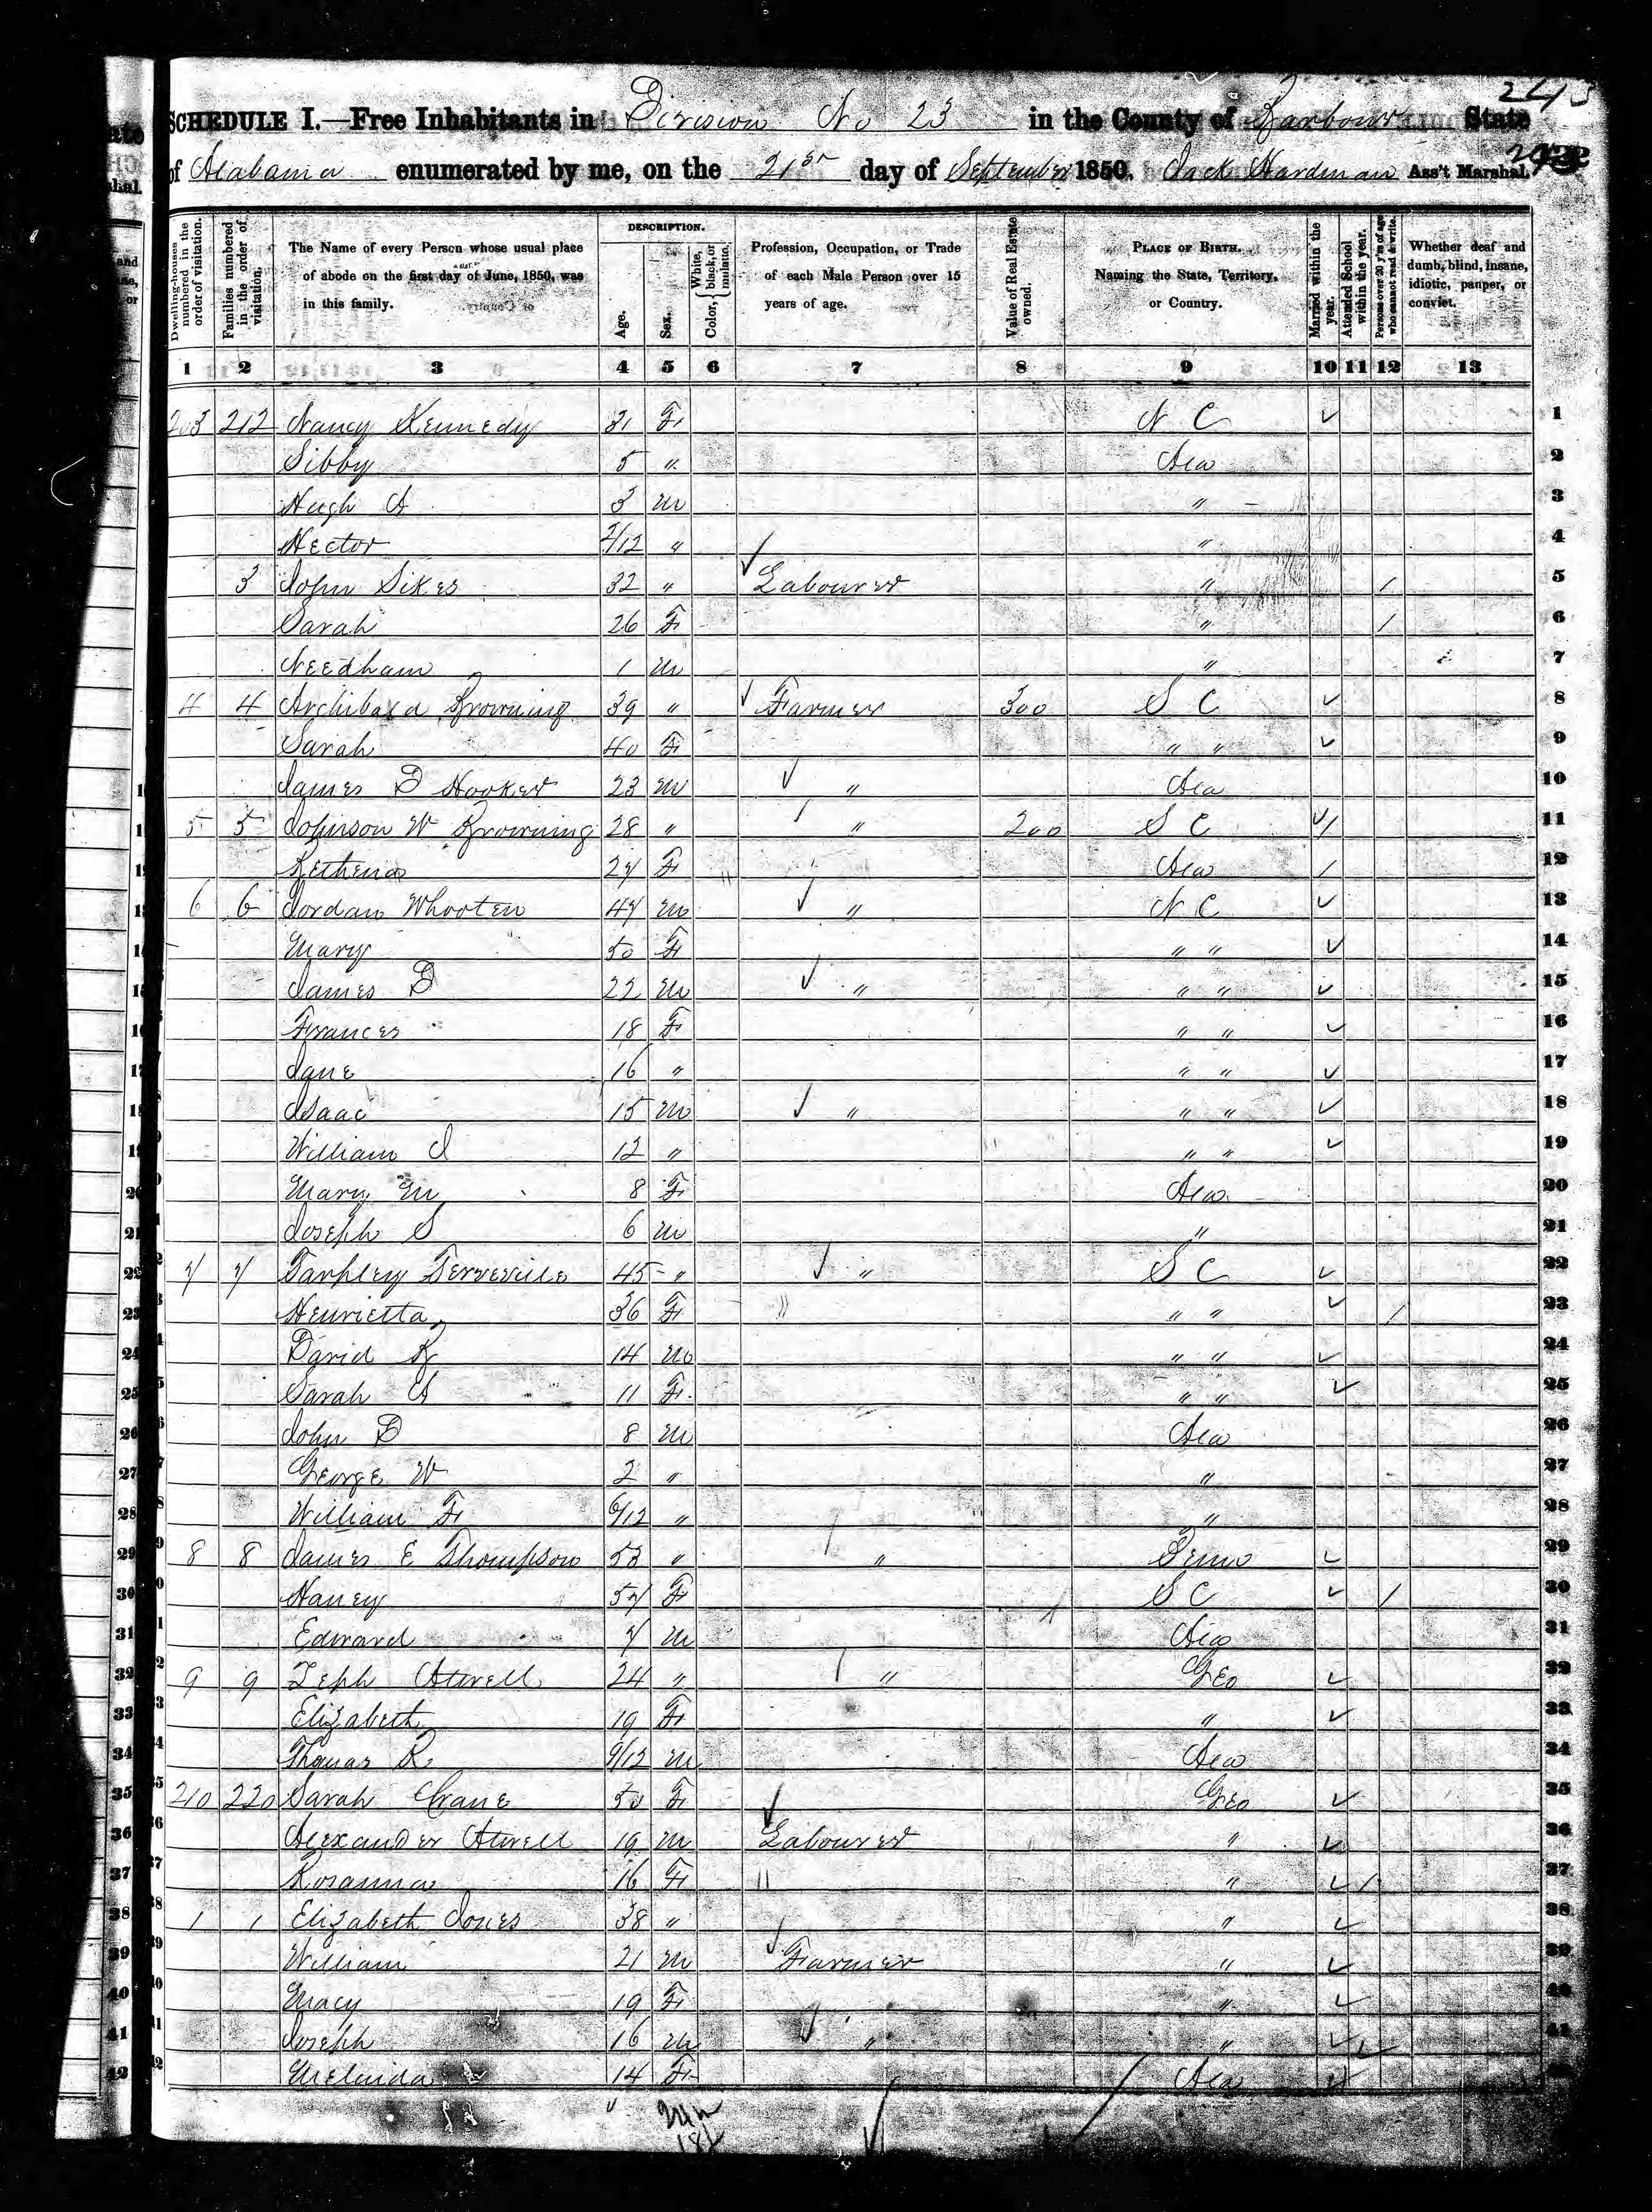 SCHEDULE I.—Free Inhabitants in Division No 23 in the County of Barbour State
of Alabama enumerated by me, on the 21st day of September 1850. Jack Hardman Ass't Marshal.
Dwelling-houses numbered in the order of visitation.
Families numbered in the order of visitation.
The Name of every Person whose usual place of abode on the first day of June, 1850, was in this family.
DESCRIPTION.
Age.
Sex.
Color, White, black, or mulatto.
Profession, Occupation, or Trade of each Male Person over 15 years of age.
Value of Real Estate owned.
PLACE OF BIRTH. Naming the State, Territory, or Country.
Married within the year.
Attended School within the year.
Persons over 20 y'rs of age who cannot read & write.
Whether deaf and dumb, blind, insane, idiotic, pauper, or convict.
1 2 3 4 5 6 7 8 9 10 11 12 13
203 212 Nancy Kennedy 31 F N C ✓ 1
Sibby 5 " Ala 2
Hugh A 3 M " 3
Hector 2/12 " " 4
3 John Sikes 32 " Labourer " / 5
Sarah 26 F " / 6
Needham 1 M " 7
4 4 Archibald Browning 39 " Farmer 300 S C ✓ 8
Sarah 40 F " " ✓ 9
James D Hooker 23 M " Ala 10
5 5 Johnson W Browning 28 " " 200 S C ✓ / 11
Bethena 27 F Ala / 12
6 6 Jordan Whooten 47 M " N C ✓ 13
Mary 50 F " " ✓ 14
James D 22 M " " " ✓ 15
Frances 18 F " " ✓ 16
Jane 16 " " " ✓ 17
Isaac 15 M " " " ✓ 18
William J 12 " " " ✓ 19
Mary M 8 F Ala 20
Joseph S 6 M " 21
7 7 Tarpley 45 " " S C ✓ 22
Henrietta 36 F " " ✓ / 23
David B 14 M " " ✓ 24
Sarah A 11 F " " ✓ 25
John D 8 M Ala 26
George W 2 " " 27
William F 6/12 " " 28
8 8 James E Thompson 53 " " Penn ✓ 29
Nancy 57 F S C ✓ / 30
Edward 7 M Ala 31
9 9 Zeph Atwell 24 " " Geo ✓ 32
Elizabeth 19 F " ✓ 33
Thomas R 9/12 M Ala 34
210 220 Sarah Crane 50 F Geo ✓ 35
Alexander Atwell 19 M Labourer " ✓ 36
Rosanna 16 F " ✓ / 37
1 1 Elizabeth Jones 38 " " ✓ 38
William 21 M Farmer " ✓ 39
Macy 19 F " ✓ 40
Joseph 16 M " " ✓ ✓ 41
Melinida 14 F Ala ✓ 42